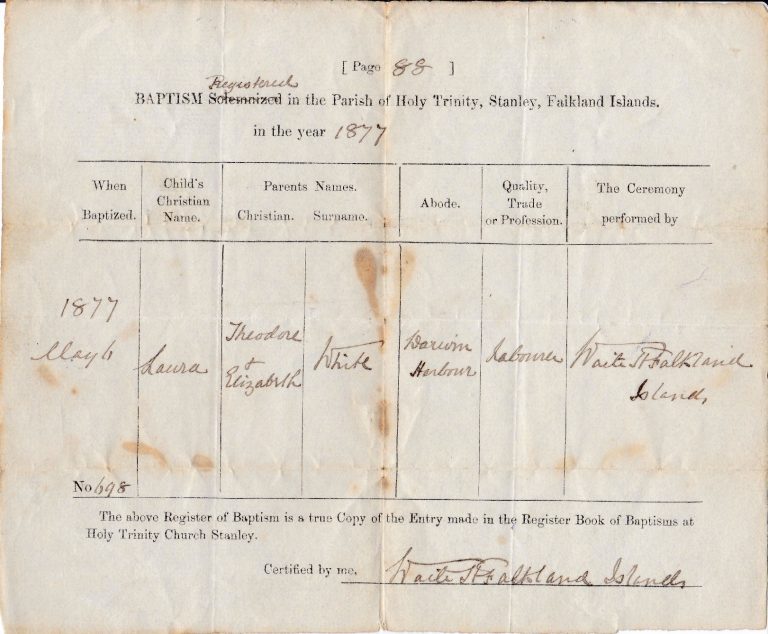 [ Page 88 ]
Registered
BAPTISM Solemnized in the Parish of Holy Trinity, Stanley, Falkland Islands.
in the year 1877
When Baptized.
Child's Christian Name.
Parents Names.
Christian. Surname.
Abode.
Quality, Trade or Profession.
The Ceremony performed by
1877
May 6
Laura
Theodore
&
Elizabeth
White
Darwin
Harbour
Labourer
Waite H Falkland
Islands
No 698
The above Register of Baptism is a true Copy of the Entry made in the Register Book of Baptisms at
Holy Trinity Church Stanley.
Certified by me, Waite H Falkland Islands